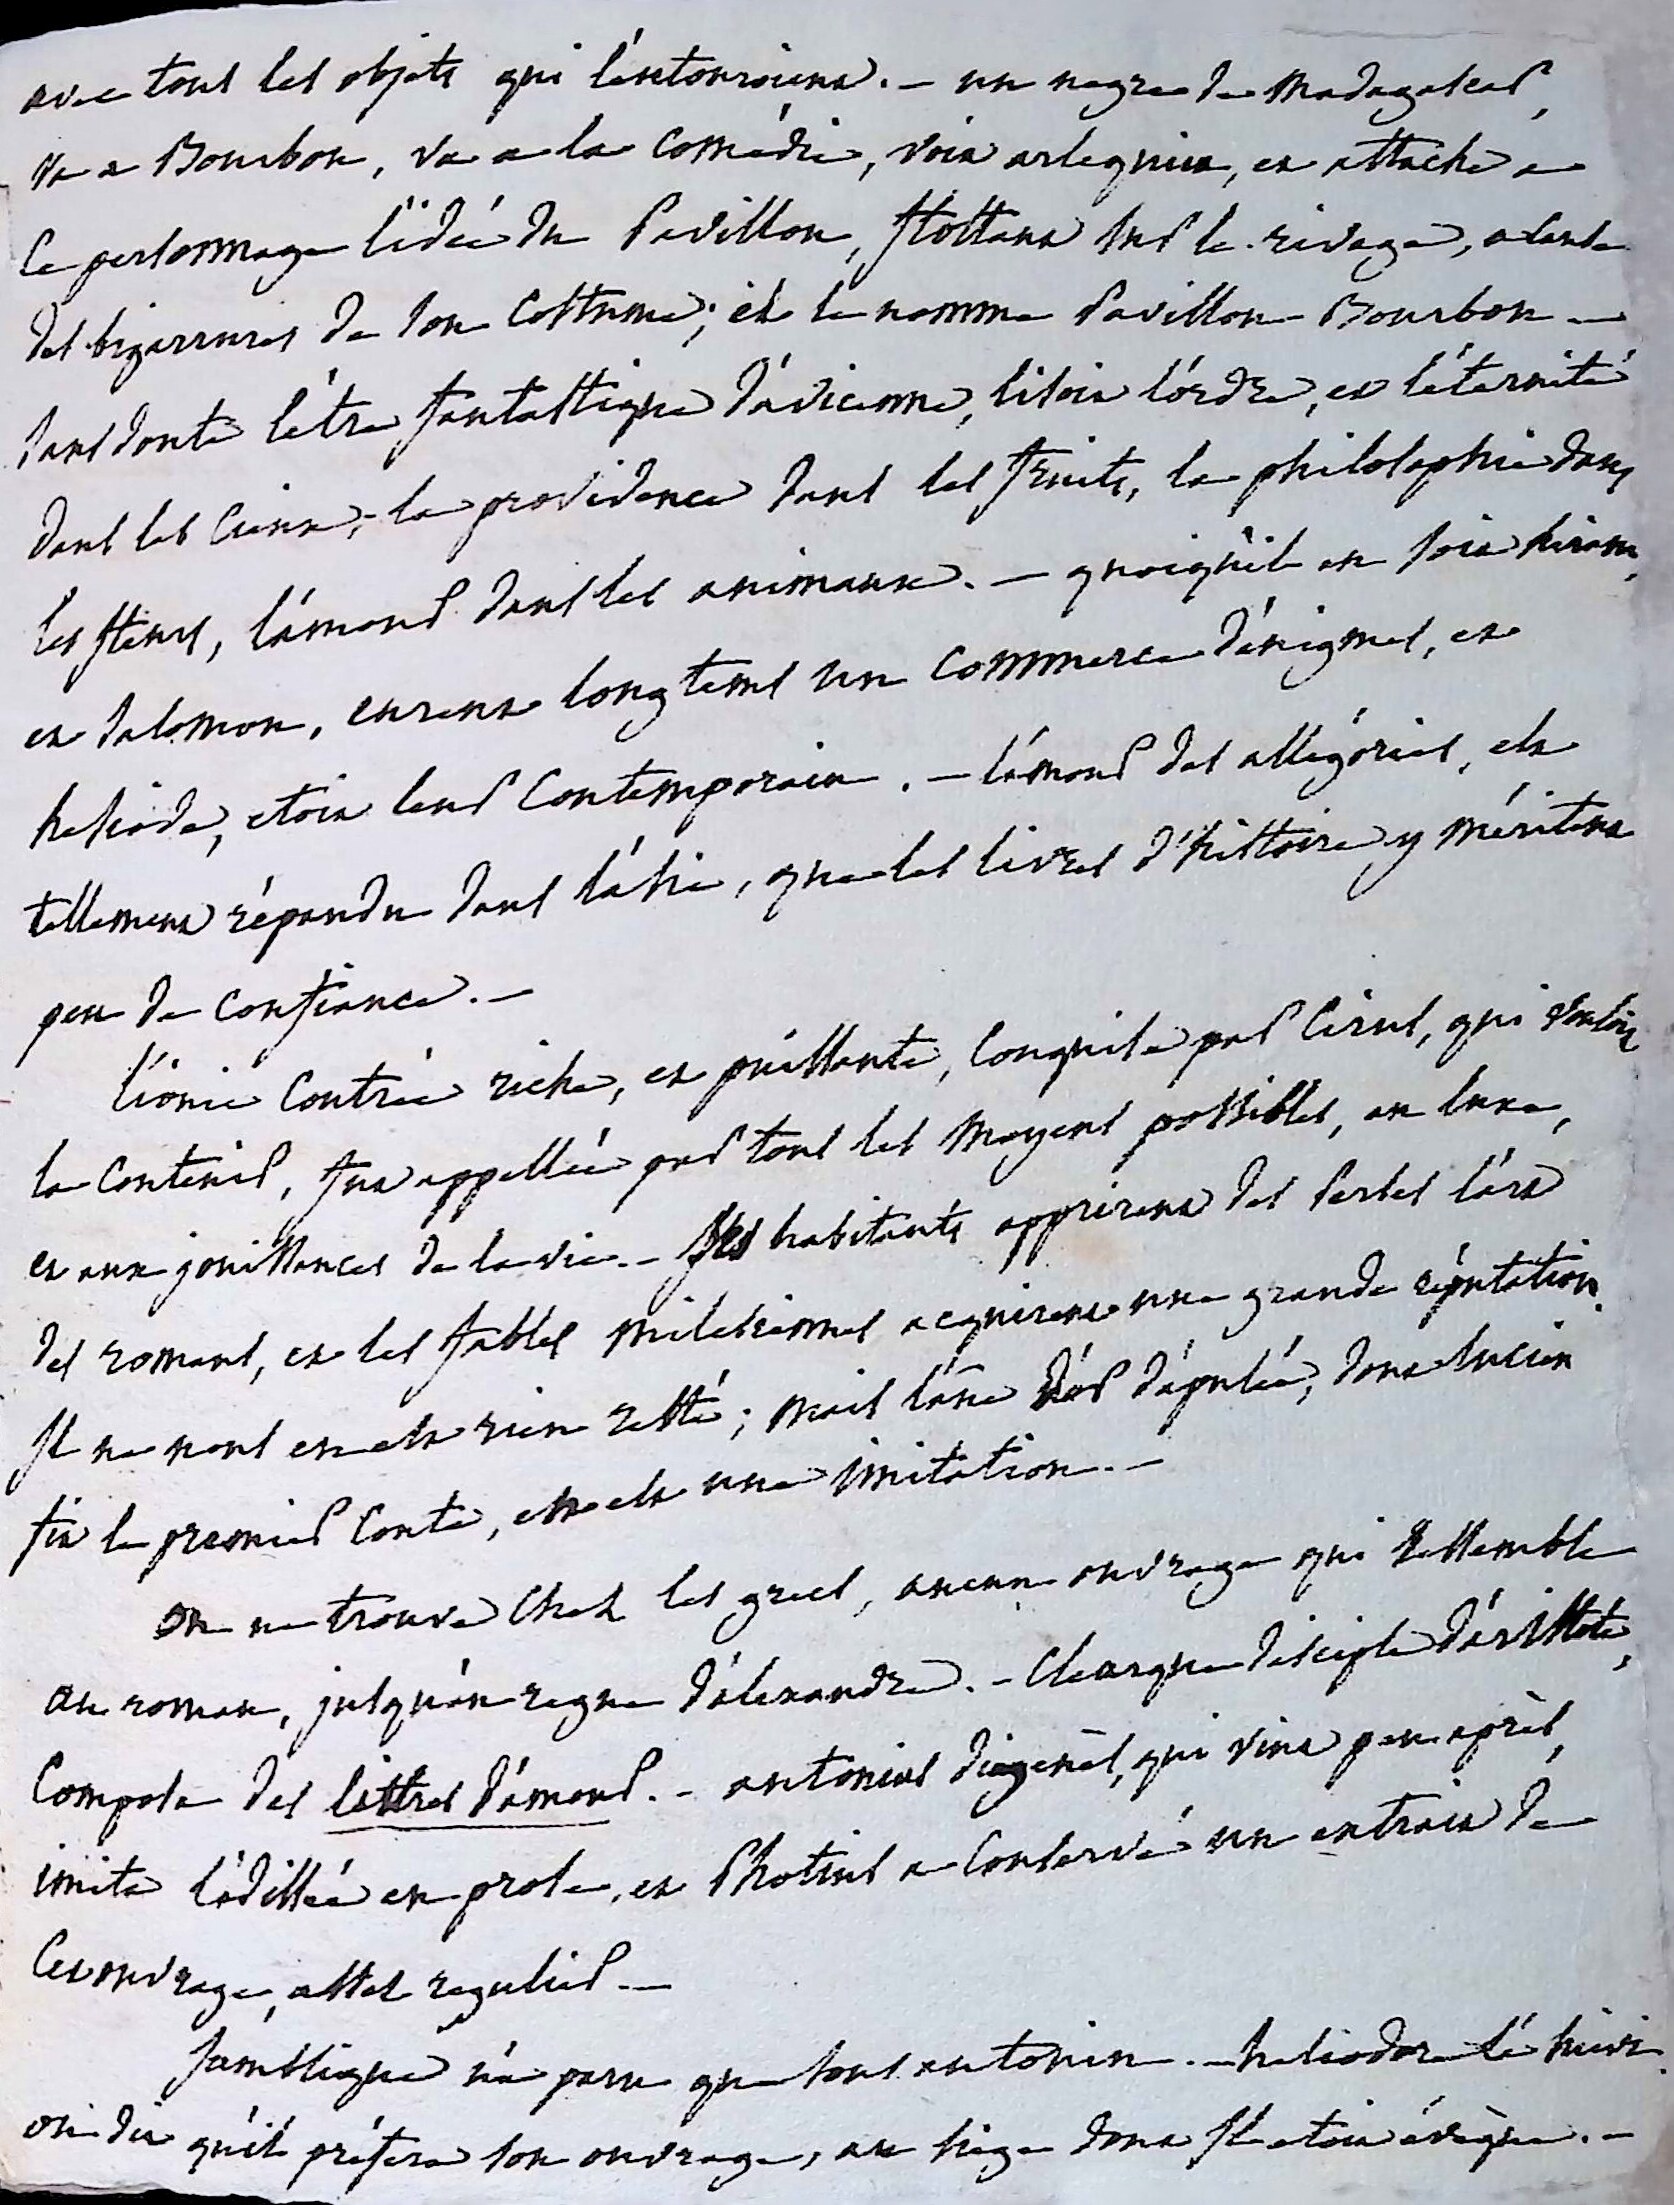 avec tous les objets qui l'entouroient. — un negre de Madagascar,
va a Bourbon, va a la Comédie, voit arlequin, et attache a
Ce personnage l'idée du Pavillon, flottant sur le rivage, a cause
des bizarrures de son Costume; et le nomme Pavillon Bourbon —
sans doute l'être fantastique d'avicenne, lisoit l'ordre, et l'éternité
dans les Cieux, la providence dans les fruits, la philosophie dans
les fleurs, l'amour dans les animaux. — quoiqu'il en soit hiram,
et Salomon, eurent longtems un commerce d'énigmes, et
hesiode, etoit leur Contemporain. — l'amour des allégories, est
tellement répandu dans l'asie, que les livres d'histoire y méritent
peu de Confiance. —
l'ionie Contrée riche, et puissante, Conquise par Cirus, qui vouloit
la Contenir, fut appellée par tous les moyens possibles, au luxe,
et aux jouissances de la vie. — ses habitants apprirent des Perses l'art
des romans, et les fables milesiennes acquirent une grande réputation.
Il ne nous en est rien resté; mais l'âne d'or d'apulée, dont lucien
fit le premier Conte, en est une imitation. —
on ne trouve Chez les grecs, aucun ouvrage qui ressemble
au roman, jusqu'au regne d'alexandre. — Clearque disciple d'aristote,
Composa des lettres d'amour. — antonius diogenes, qui vint peu après,
imita l'odissée en prose, et Photius a Conservé un extrait de
Cet ouvrage, assez regulier. —
Jamblique n'a paru que sous antonin. — heliodore l'a suivi.
on dit qu'il préfera son ouvrage, au siege dont Il etoit évèque. —